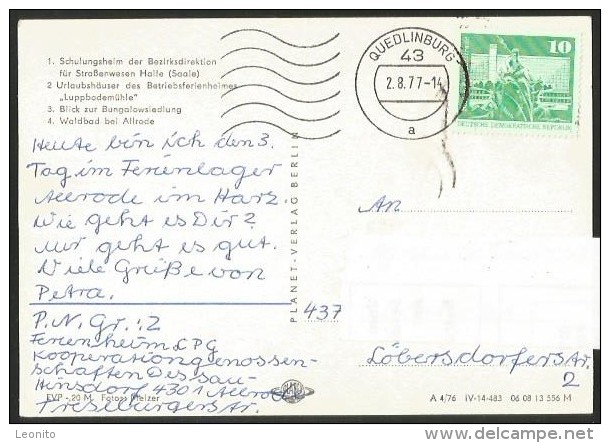 1. Schulungsheim der Bezirksdirektion
für Straßenwesen Halle (Saale)
2 Urlaubshäuser des Betriebsferienheimes
„Luppbodemühle“
3. Blick zur Bungalowsiedlung
4. Waldbad bei Allrode
QUEDLINBURG
43
2.8.77-14
a
10
DEUTSCHE DEMOKRATISCHE REPUBLIK
Heute bin ich den 3.
Tag im Ferienlager
Allrode im Harz.
Wie geht es Dir?
Mir geht es gut.
Viele Grüße von
Petra.
P. N. Gr.: 2
Ferienheim LPG
Kooperationgenossen-
schaften Dessau-
Hinsdorf 4301 Allrode
Treseburgerstr.
PLANET-VERLAG BERLIN
An
437
Löbersdorferstr.
2
EVP -,20 M Fotos: Melzer
A 4/76 IV-14-483 06 08 13 556 M
www.delcampe.net